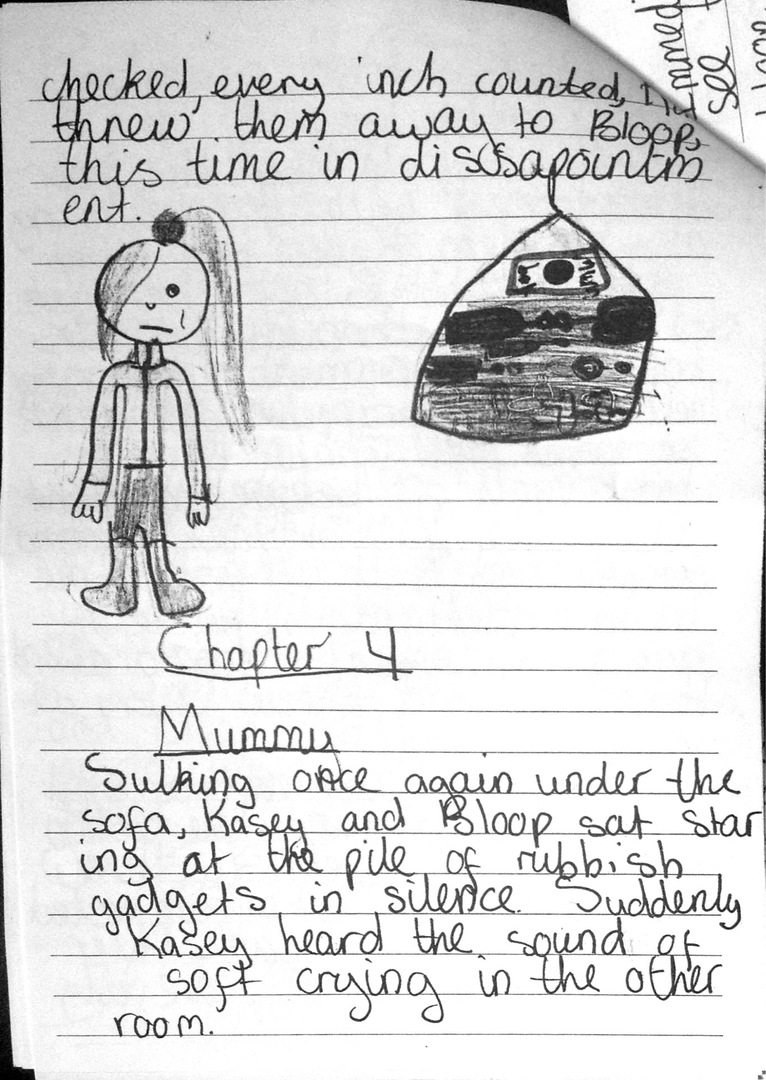 checked, every inch counted,
threw them away to Bloop,
this time in dissapointm
ent.
Chapter 4
Mummy
Sulking once again under the
sofa, Kasey and Bloop sat star
ing at the pile of rubbish
gadgets in silence. Suddenly
Kasey heard the sound of
soft crying in the other
room.
see